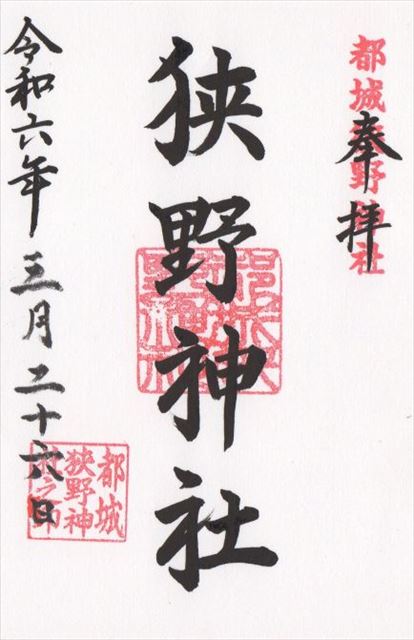 都城狭野神社
奉拝
狭野神社
令和六年三月二十六日
都城
狭野神